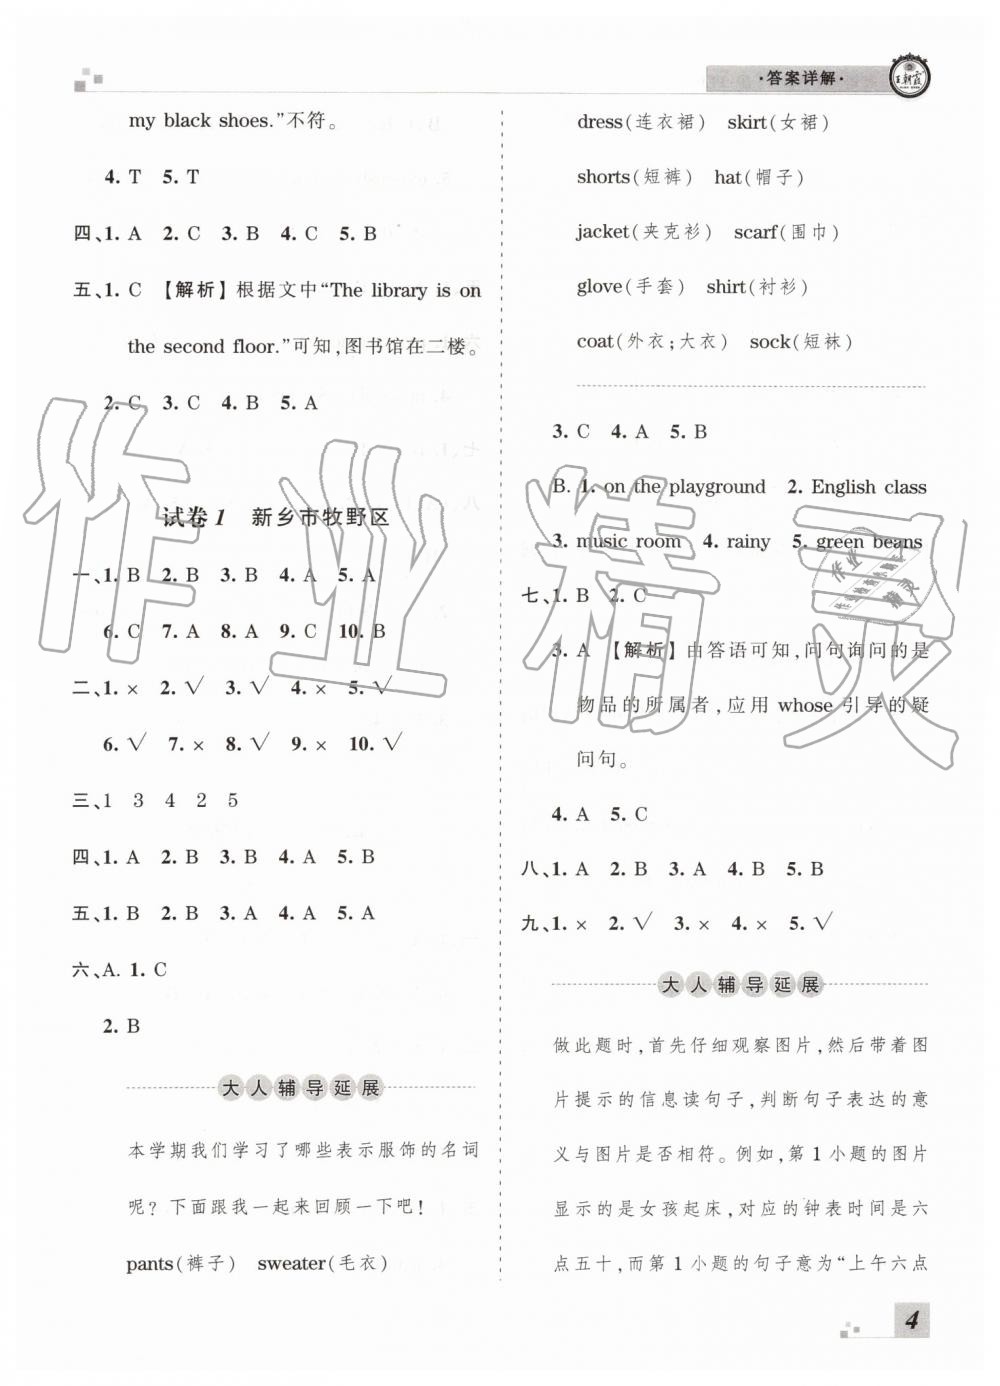 ·答案详解·
王朝霞
my black shoes.”不符。
4. T 5. T
四、1. A 2. C 3. B 4. C 5. B
五、1. C 【解析】根据文中“The library is on
the second floor.”可知,图书馆在二楼。
2. C 3. C 4. B 5. A
试卷1 新乡市牧野区
一、1. B 2. B 3. B 4. A 5. A
6. C 7. A 8. A 9. C 10. B
二、1. × 2. √ 3. √ 4. × 5. √
6. √ 7. × 8. √ 9. × 10. √
三、1 3 4 2 5
四、1. A 2. B 3. B 4. A 5. B
五、1. B 2. B 3. A 4. A 5. A
六、A. 1. C
2. B
大人辅导延展
本学期我们学习了哪些表示服饰的名词
呢？下面跟我一起来回顾一下吧！
pants(裤子) sweater(毛衣)
dress(连衣裙) skirt(女裙)
shorts(短裤) hat(帽子)
jacket(夹克衫) scarf(围巾)
glove(手套) shirt(衬衫)
coat(外衣;大衣) sock(短袜)
3. C 4. A 5. B
B. 1. on the playground 2. English class
3. music room 4. rainy 5. green beans
七、1. B 2. C
3. A 【解析】由答语可知,问句询问的是
物品的所属者,应用 whose 引导的疑
问句。
4. A 5. C
八、1. A 2. B 3. A 4. B 5. B
九、1. × 2. √ 3. × 4. × 5. √
大人辅导延展
做此题时,首先仔细观察图片,然后带着图
片提示的信息读句子,判断句子表达的意
义与图片是否相符。例如,第1小题的图片
显示的是女孩起床,对应的钟表时间是六
点五十,而第1小题的句子意为“上午六点
4
作业精灵